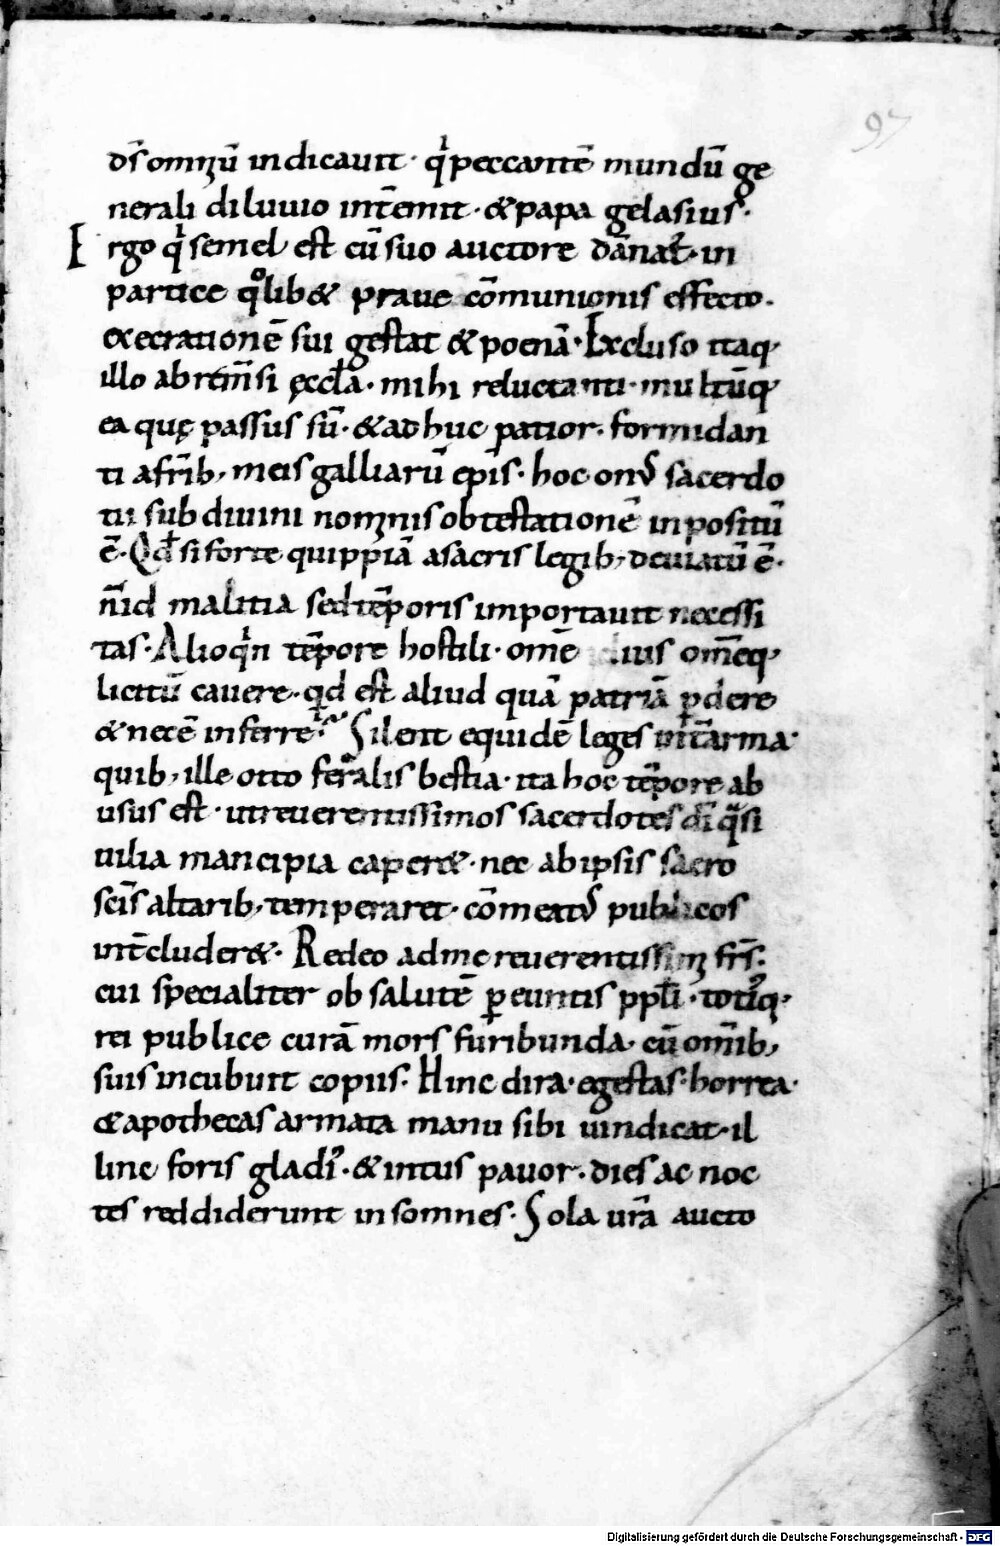 97
ds̄ omniū indicauit · qi peccantē mundū ge
nerali diluuio int̄emit · & papa gelasius ·
Ergo qi semel est cū suo auctore dānat᷑ · in
partice qolib& praue cōmunionis effecto ·
execrationē sui gestat & poenā · Excluso itaq·
illo ab rem̄si ęccła · mihi reluctanti · multūq·
ea quę passus sū · & adhuc patior · formidan
ti a fr̄ib; meis galliarū ep̄is · hoc on᷒ sacerdo
tii sub diuini nominis obtestationē inpositū
ē · Qđ si forte quippiā a sacris legib; deuiatū ē ·
n̄ id malitia sed tēporis importauit necessi
tas · Alioqin tēpore hostili · om̄e ius om̄eq·
licitū cauere · qđ est aliud quā patriā ꝑdere
& necē inferre · Silent equidē leges int̄ arma ·
quib; ille otto feralis bestia · ita hoc tēpore ab
usus est · ut reuerentissimos sacerdotes dī qasi
uilia mancipia caper& · nec ab ipsis sacro
sc̄is altarib; temperaret · cōmeat᷒ publicos
int̄cluder& · Redeo ad me reuerentissimi fr̄s ·
cui specialiter ob salutē ꝑeuntis ppłi · toti᷒q·
rei publice curā mors furibunda · cū om̄ib;
suis incubuit copiis · Hinc dira · egestas · horrea ·
& apothecas armata manu sibi uindicat · il
linc foris gladi᷒ · & intus pauor · dies ac noc
tes reddiderunt insomnes · Sola ur̄a aucto
Digitalisierung gefördert durch die Deutsche Forschungsgemeinschaft - DFG